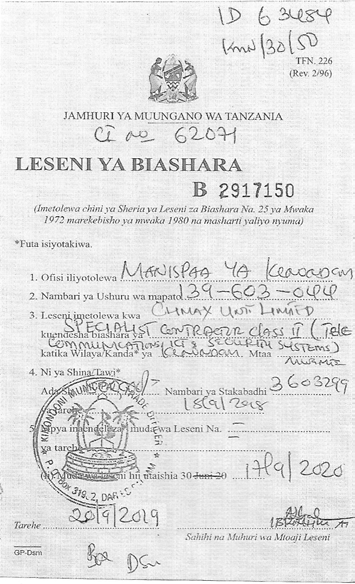 ID 63484
KMN/30/50
TFN. 226
(Rev. 2/96)
JAMHURI YA MUUNGANO WA TANZANIA
CI no 62071
LESENI YA BIASHARA
B 2917150
(Imetolewa chini ya Sheria ya Leseni za Biashara No. 25 ya Mwaka
1972 marekebisho ya mwaka 1980 na masharti yaliyo nyuma)
*Futa isiyotakiwa.
1. Ofisi iliyotolewa MANISPAA YA
2. Nambari ya Ushuru wa mapato 139-603-044
3. Leseni imetolewa kwa CLIMAX UNIT LIMITED
kuendesha biashara ya SPECIALIST CONTRACTOR CLASS II (TELE
COMMUNICATIONS, ICT & SECURITY SYSTEMS)
katika Wilaya/Kanda* ya Mtaa
4. Ni ya Shina/Tawi*
Ada Nambari ya Stakabadhi 3603299
Tarehe 18/9/2018
5. Mpya inaendeleza* muda wa Leseni Na.
ya tarehe
hii utaishia 30 Juni 20 17/9/2020
KINONDONI MUNICIPAL TRADE OFFICER
DAR ES SALAAM
Tarehe 20/9/2019
Sahihi na Muhuri wa Mtoaji Leseni
GP-Dsm
DSM